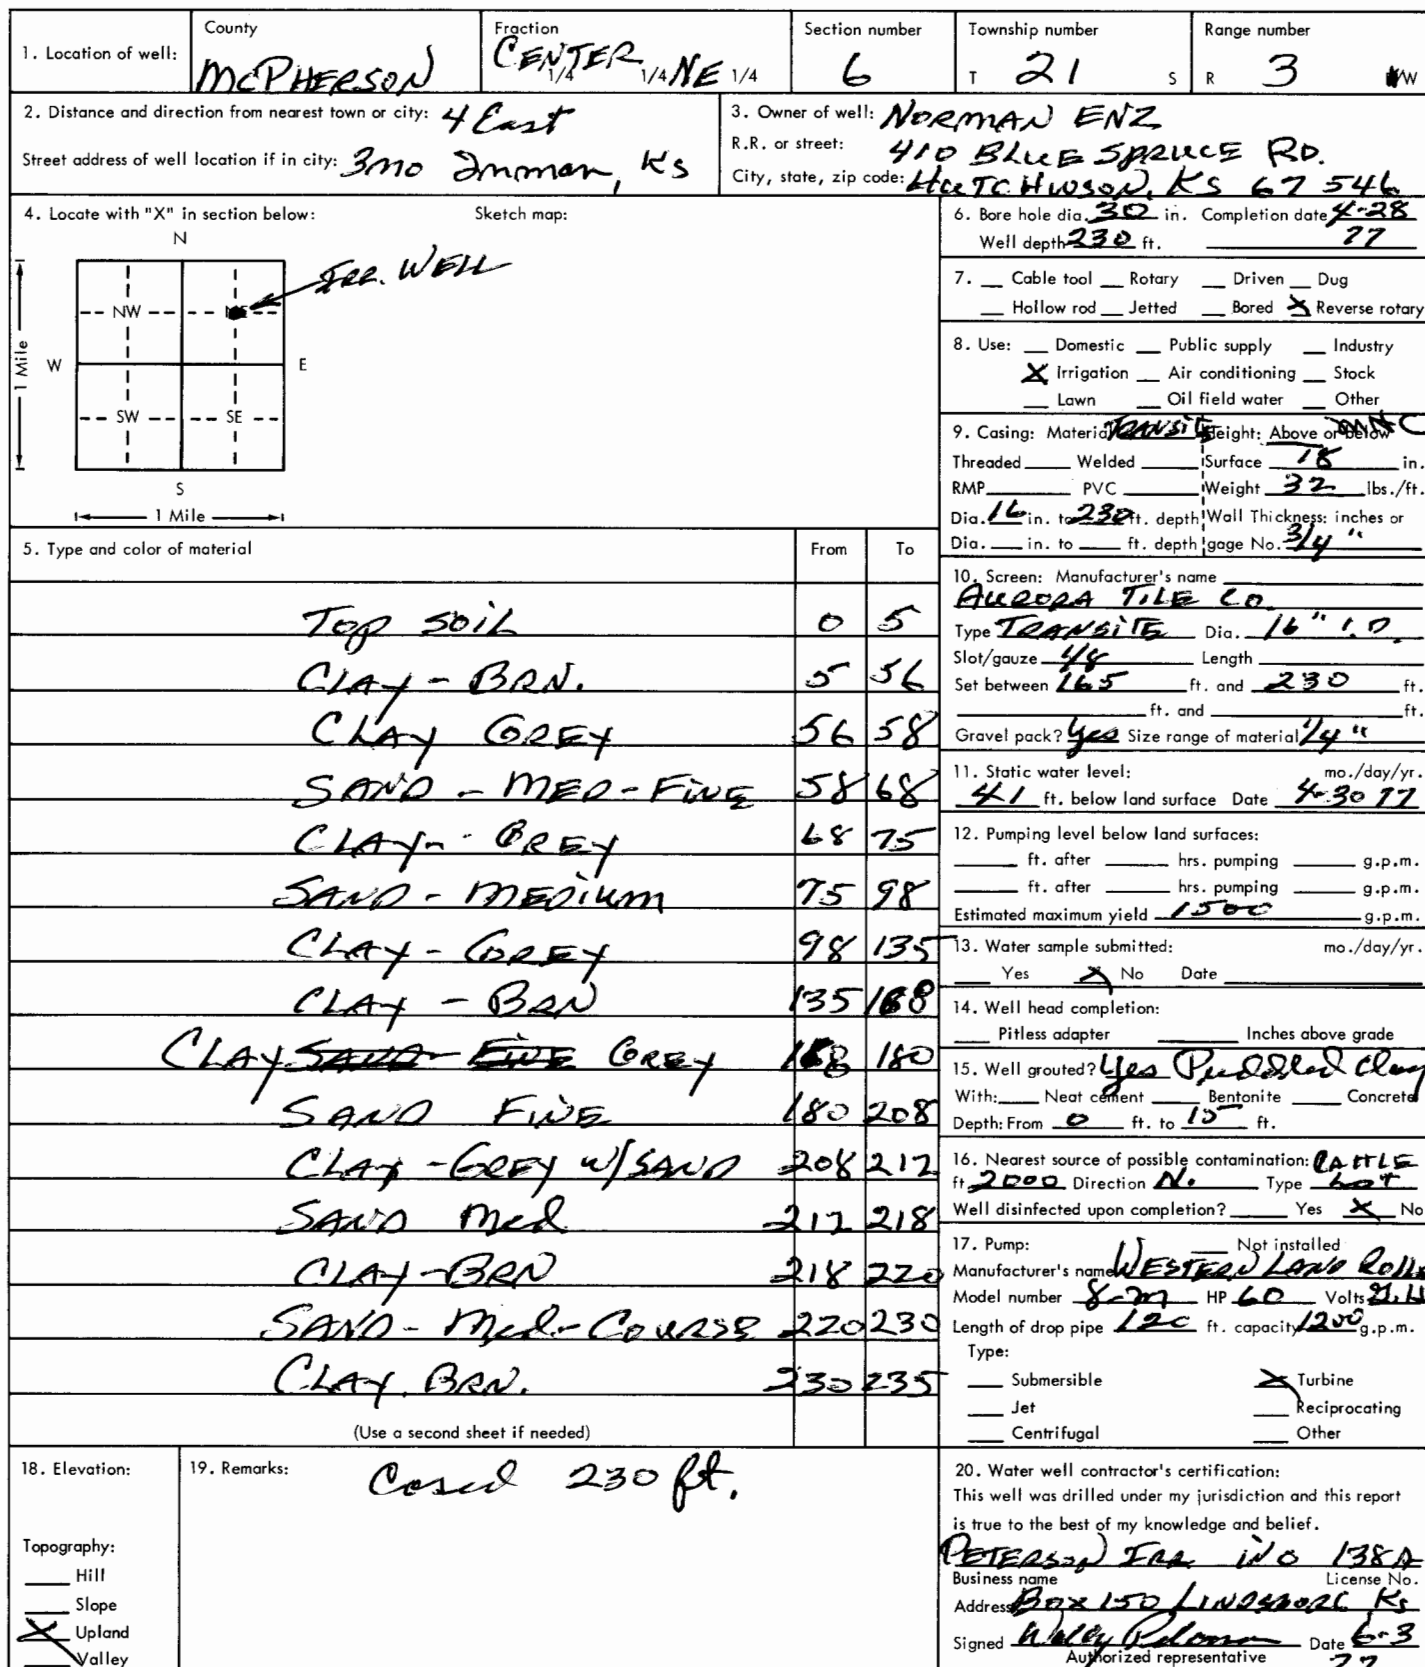 1. Location of well:
County
McPHERSON
Fraction
CENTER 1/4 1/4 NE 1/4
Section number
6
Township number
T 21 S
Range number
R 3 W
2. Distance and direction from nearest town or city: 4 East
Street address of well location if in city: 3 no Inman, Ks
3. Owner of well: NORMAN ENZ
R.R. or street: 410 BLUE SPRUCE RD.
City, state, zip code: HUTCHINSON, KS 67546
4. Locate with "X" in section below:
Sketch map:
N
IRR. WELL
NW
W
E
1 Mile
SW
SE
S
1 Mile
6. Bore hole dia. 30 in. Completion date 4-28
Well depth 230 ft. 77
7. Cable tool Rotary Driven Dug
Hollow rod Jetted Bored X Reverse rotary
8. Use: Domestic Public supply Industry
X Irrigation Air conditioning Stock
Lawn Oil field water Other
9. Casing: Material TRANSITE Height: Above or below
Threaded Welded Surface 18 in.
RMP PVC Weight 32 lbs./ft.
Dia. 16 in. to 230 ft. depth Wall Thickness: inches or
Dia. in. to ft. depth gage No. 3/4 "
10. Screen: Manufacturer's name
AURORA TILE CO.
Type TRANSITE Dia. 16" I.D.
Slot/gauze 1/8 Length
Set between 165 ft. and 230 ft.
ft. and ft.
Gravel pack? Yes Size range of material 1/4 "
11. Static water level: mo./day/yr.
41 ft. below land surface Date 4-30 77
12. Pumping level below land surfaces:
ft. after hrs. pumping g.p.m.
ft. after hrs. pumping g.p.m.
Estimated maximum yield 1500 g.p.m.
13. Water sample submitted: mo./day/yr.
Yes X No Date
14. Well head completion:
Pitless adapter Inches above grade
15. Well grouted? Yes Puddled Clay
With: Neat cement Bentonite Concrete
Depth: From 0 ft. to 15 ft.
16. Nearest source of possible contamination: CATTLE
ft 2000 Direction N. Type Lot
Well disinfected upon completion? Yes X No
17. Pump: Not installed
Manufacturer's name WESTERN LAND ROLLER
Model number 8-M HP 60 Volts
Length of drop pipe 120 ft. capacity 1200 g.p.m.
Type:
Submersible X Turbine
Jet Reciprocating
Centrifugal Other
5. Type and color of material From To
TOP SOIL 0 5
CLAY - BRN. 5 56
CLAY GREY 56 58
SAND - MED - FINE 58 68
CLAY - GREY 68 75
SAND - MEDIUM 75 98
CLAY - GREY 98 135
CLAY - BRN 135 168
CLAY SAND - FINE GREY 168 180
SAND FINE 180 208
CLAY - GREY W/SAND 208 212
SAND Med 212 218
CLAY - BRN 218 220
SAND - Med - COURSE 220 230
CLAY. BRN. 230 235
(Use a second sheet if needed)
18. Elevation:
Topography:
Hill
Slope
X Upland
Valley
19. Remarks: Cased 230 ft.
20. Water well contractor's certification:
This well was drilled under my jurisdiction and this report
is true to the best of my knowledge and belief.
PETERSON IRR INC 138A
Business name License No.
Address BOX 150 LINDSBORG Ks
Signed Date 6-3
Authorized representative 77